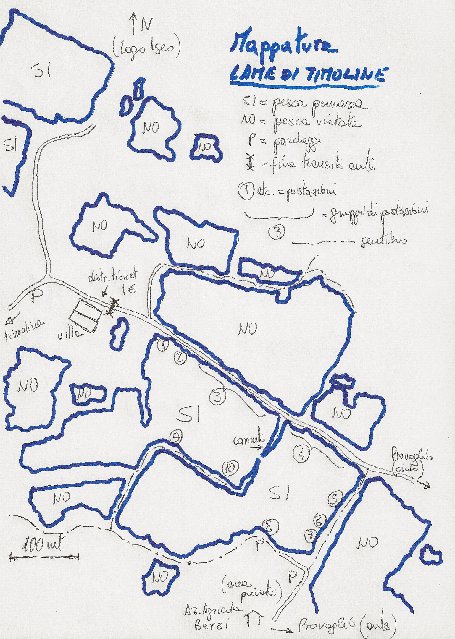 N
(Lago Iseo)
Mappatura
LAME DI TIMOLINE
SI = pesca permessa
NO = pesca vietata
P = parcheggi
= fine transito auto
① etc. = postazioni
= gruppi di postazioni
③
= sentiero
SI
SI
NO
NO
NO
NO
NO
NO
distr. ticket
1€
P
Timoline
villa
①
②
③
NO
NO
SI
canale
④
NO
⑨
⑩
SI
Provaglio
NO
⑧
P
P
NO
100 mt
NO
(area
private)
Az. Agricola
Bersi
Provaglio (auto)